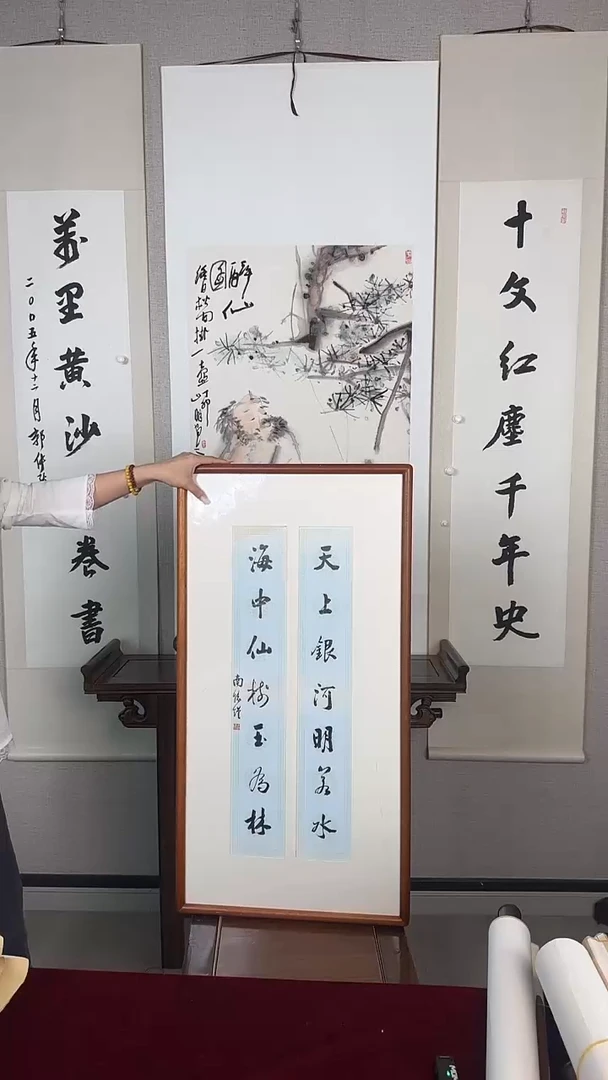 十丈红塵千年史
醉仙
圖
萬里黄沙
卷書
二00五年十二月郭
天上銀河明若水
海中仙樹玉為林
南懷瑾